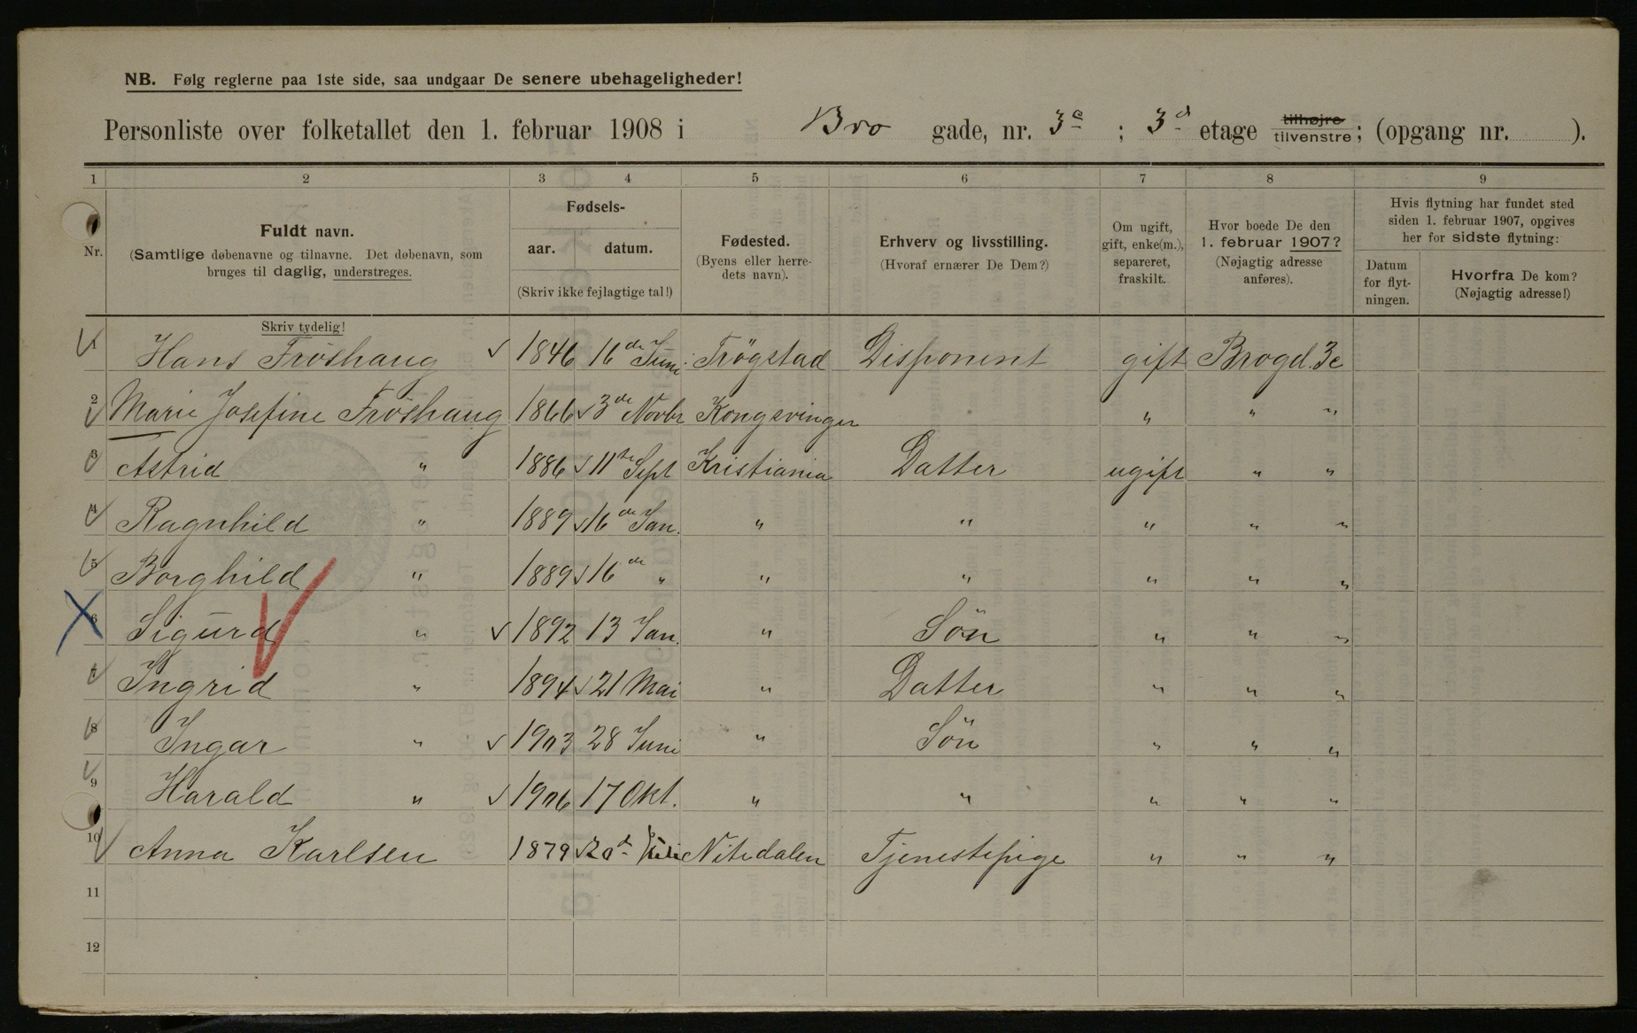 NB. Følg reglerne paa 1ste side, saa undgaar De senere ubehageligheder!
Personliste over folketallet den 1. februar 1908 i Bro gade, nr. 3c ; 3d etage tilhøjre tilvenstre; (opgang nr. ).
1 2 3 4 5 6 7 8 9
Nr.
Fuldt navn.
(Samtlige døbenavne og tilnavne. Det døbenavn, som
bruges til daglig, understreges.
Skriv tydelig!
Fødsels-
aar. datum.
(Skriv ikke fejlagtige tal!)
Fødested.
(Byens eller herre-
dets navn).
Erhverv og livsstilling.
(Hvoraf ernærer De Dem?)
Om ugift,
gift, enke(m.),
separeret,
fraskilt.
Hvor boede De den
1. februar 1907?
(Nøjagtig adresse
anføres).
Hvis flytning har fundet sted
siden 1. februar 1907, opgives
her for sidste flytning:
Datum
for flyt-
ningen.
Hvorfra De kom?
(Nøjagtig adresse!)
1 Hans Fröshaug 1846 16de Juni Trögstad Disponent gift Brogd. 3c
2 Marie Josefine Fröshaug 1866 3de Novbr Kongsvinger " " "
3 Astrid " 1886 11te Sept Kristiania Datter ugift " "
4 Ragnhild " 1889 16de Jan. " " " " "
5 Borghild " 1889 16de " " " " " "
6 Sigurd " 1892 13 Jan. " Sön " " "
7 Ingrid " 1894 21 Mai " Datter " " "
8 Ingar " 1903 28 Juni " Sön " " "
9 Harald " 1906 17 Okt. " " " " "
10 Anna Karlsen 1879 20d Nitedalen Tjenestepige " " "
11
12